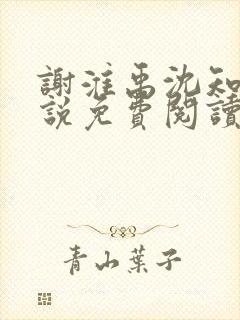 謝淮禹沈知
說免費閱讀
青山葉子